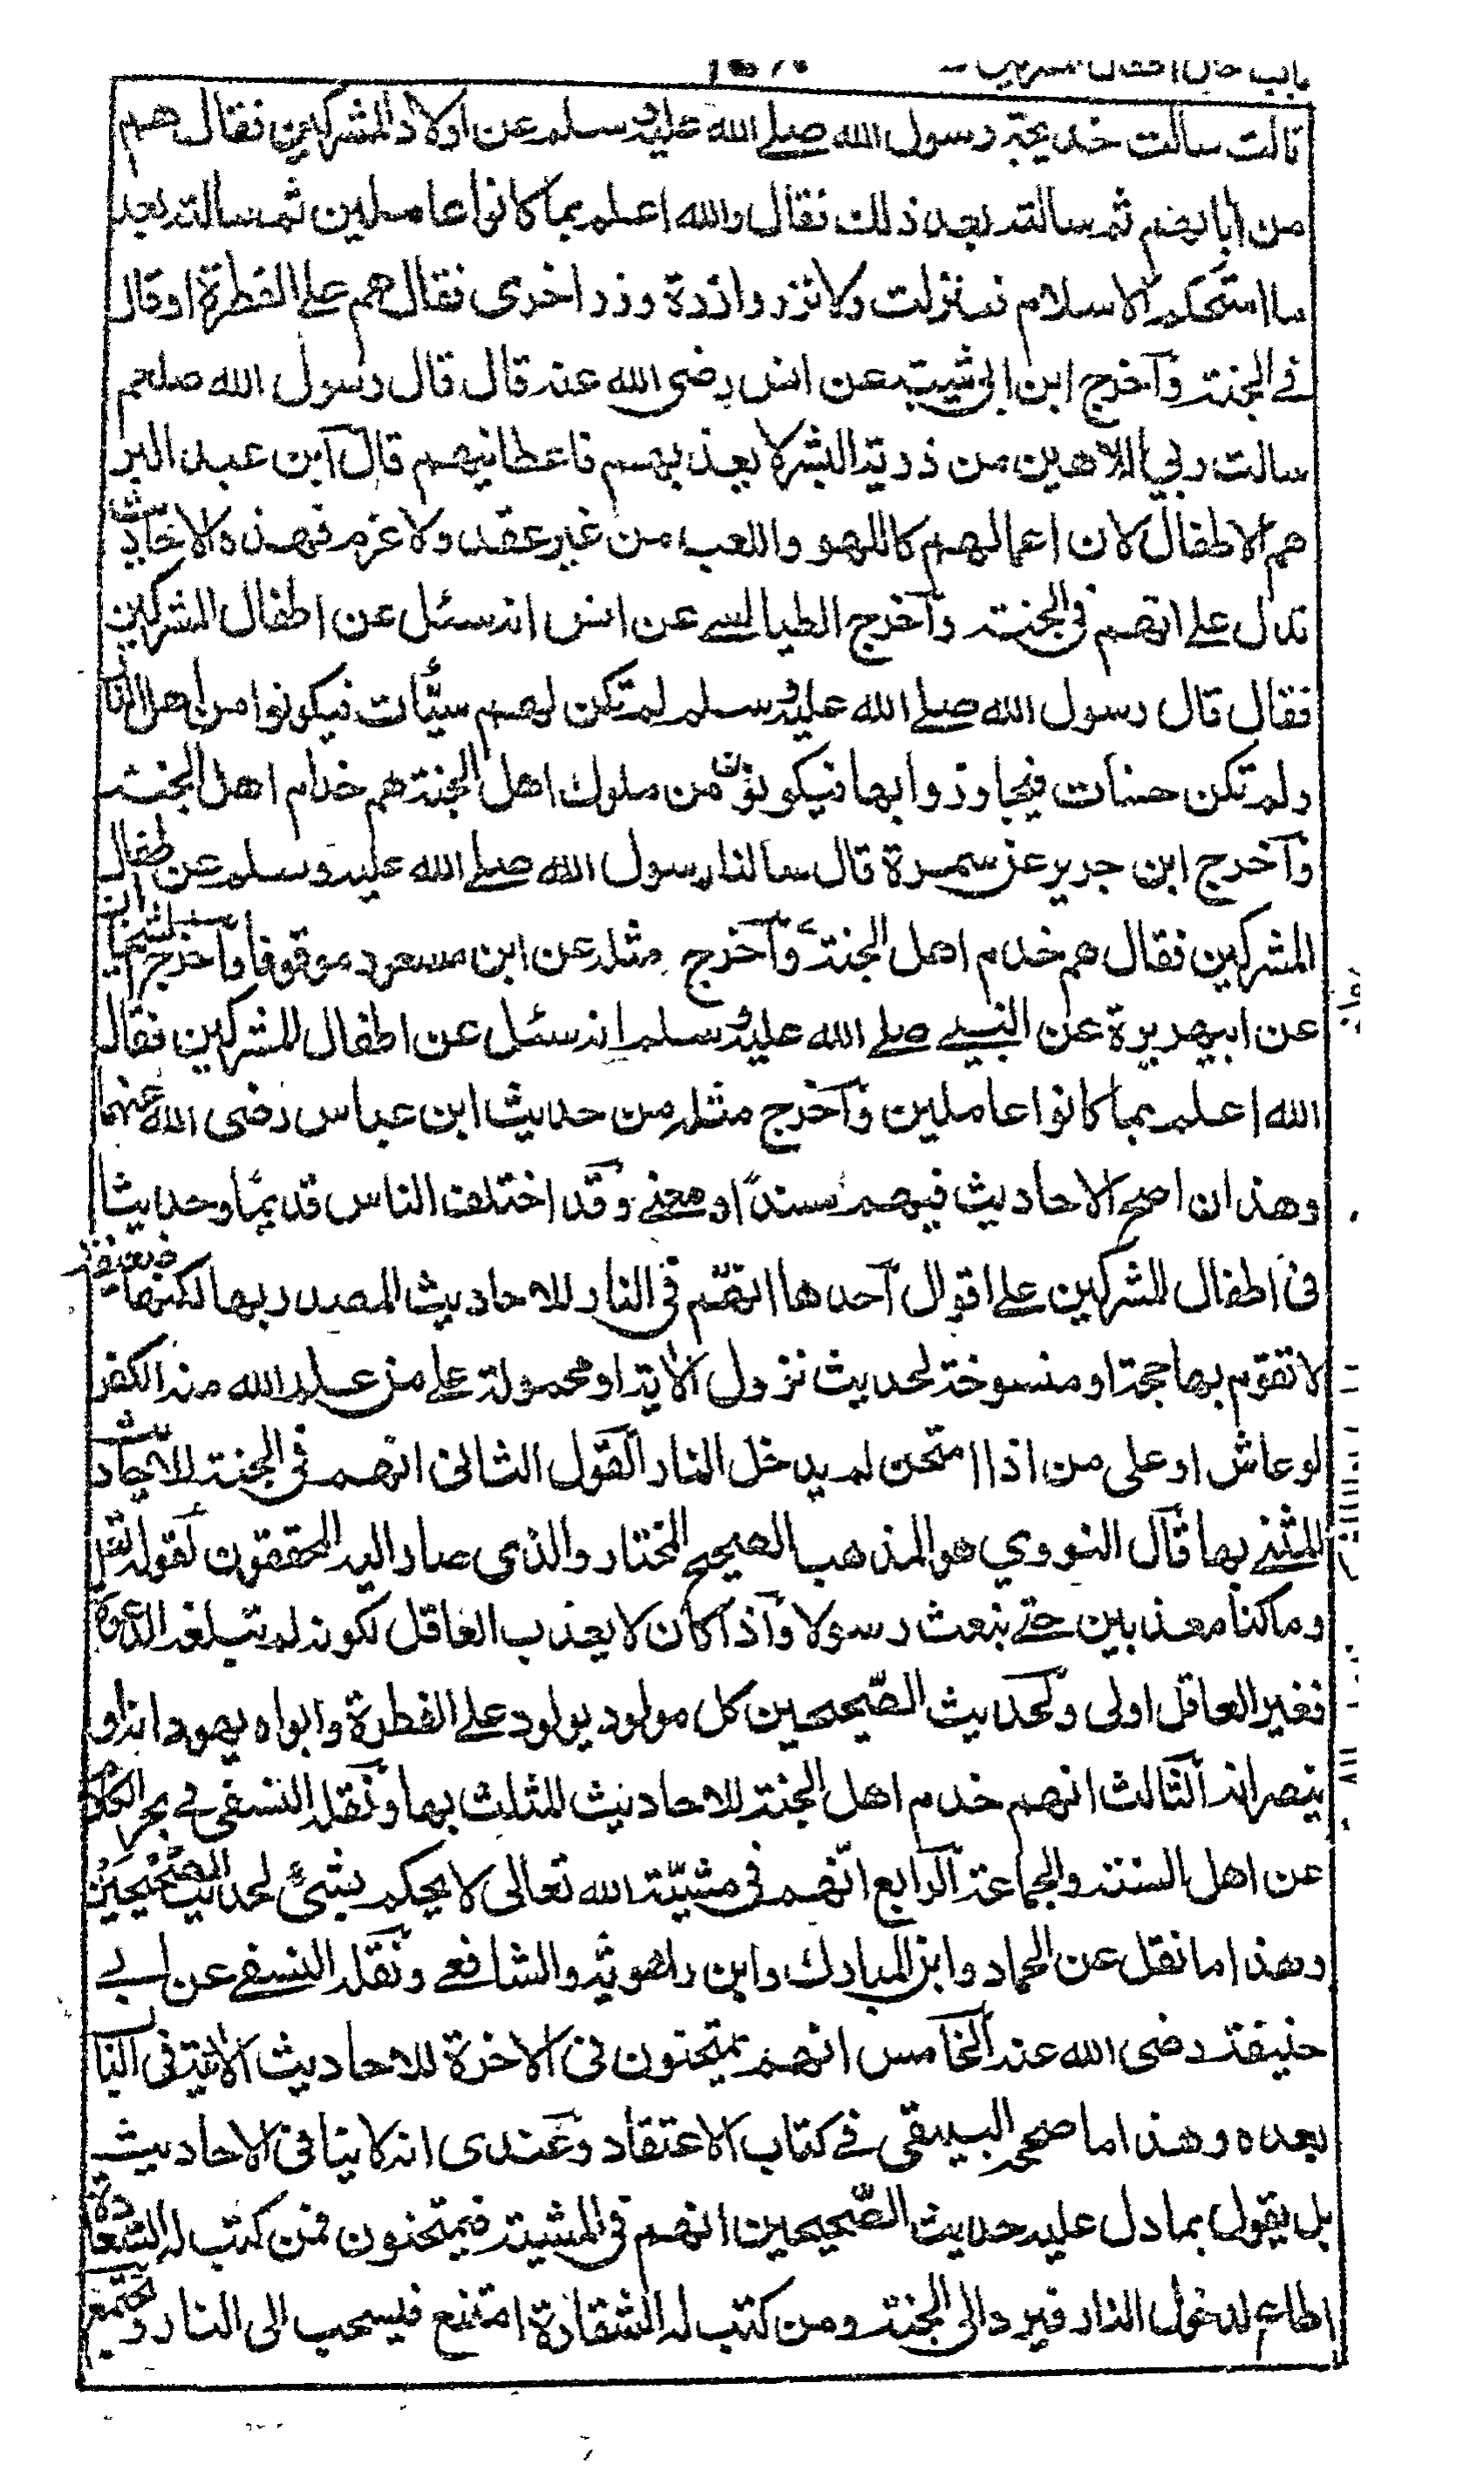 باب حال اطفال المشركين
قالت سالت خديجة رسول الله صلے الله عليه وسلم عن اولاد المشركين فقال هم
من اٰبايهم ثم سالته بعد ذلك فقال والله اعلم بما كانوا عاملين ثم سالته بعد
ما استحكم الاسلام فنزلت ولا تزر وازرة وزر اخرى فقال هم على الفطرة او قال
فے الجنة وآخرج ابن ابى شيبة عن انس رضى الله عنه قال قال رسول الله صلعم
سالت ربي اللاهين من ذرية البشر لا يعذبهم فاعطانيهم قال ابن عبد البر
هم الاطفال لان اعمالهم كاللهو واللعب من غير عقد ولا عزم فهذه الاحاديث
تدل علے انهم فى الجنة وآخرج الطيالسے عن انس انه سئل عن اطفال المشركين
فقال قال رسول الله صلے الله عليه وسلم لم تكن لهم سيّأت فيكونوا من اهل النار
ولم تكن حسنات فيجاوزوا بها فيكونون من ملوك اهل الجنة هم خدام اهل الجنة
وآخرج ابن جرير عن سمرة قال سالنا رسول الله صلے الله عليه وسلم عن اطفال
المشركين فقال هم خدم اهل الجنة وآخرج مثله عن ابن مسعود موقوفا وآخرج الشيخان
عن ابيهريرة عن النبے صلے الله عليه وسلم انه سئل عن اطفال المشركين فقال
الله اعلم بما كانوا عاملين وآخرج مثله من حديث ابن عباس رضى الله عنهما
وهذان اصح الاحاديث فيهم سنداً ومعنے وقد اختلف الناس قديمًا وحديثا
فى اطفال المشركين علے اقوال آحدها انهم فى النار للاحاديث المصدر بها لكنها ضعيفة
لا تقوم بها حجة او منسوخة لحديث نزول الاٰية او محمولة علے من علم الله منه الكفر
لو عاش او على من اذا امتحن لم يدخل النار القول الثانى انهم فى الجنة للاحاديث
المثنے بها قال النووي هو المذهب الصحيح المختار والذى صار اليه المحققون لقوله تعالى
وما كنا معذبين حتے نبعث رسولا وآذا كان لا يعذب العاقل لكونه لم تبلغه الدعوة
فغير العاقل اولى ولحديث الصّحيحين كل مولود يولد على الفطرة وابواه يهودانه او
ينصرانه الثالث انهم خدم اهل الجنة للاحاديث المثلث بها ونقله النسفى فے بحر الكلام
عن اهل السنة والجماعة الرابع انّهم فى مشيّة الله تعالى لا يحكم بشئ لحديث الصحيحين
وهذا ما نقل عن الحماد وابن المبارك وابن راهويه والشافعے ونقله النسفے عن ابے
حنيفة رضى الله عنه الخامس انهم يمتحنون فى الاخرة للاحاديث الاٰتية فى الباب
بعده وهذا ما صححه البيهقى فے كتاب الاعتقاد وعندى انه لا ينافى الاحاديث
بل يقول بما دل عليه حديث الصّحيحين انهم فى المشية فيمتحنون فمن كتب له السّعادة
اطاع لدخول النار فيرد الى الجنة ومن كتب له الشقاوة امتنع فيسحب الى النار